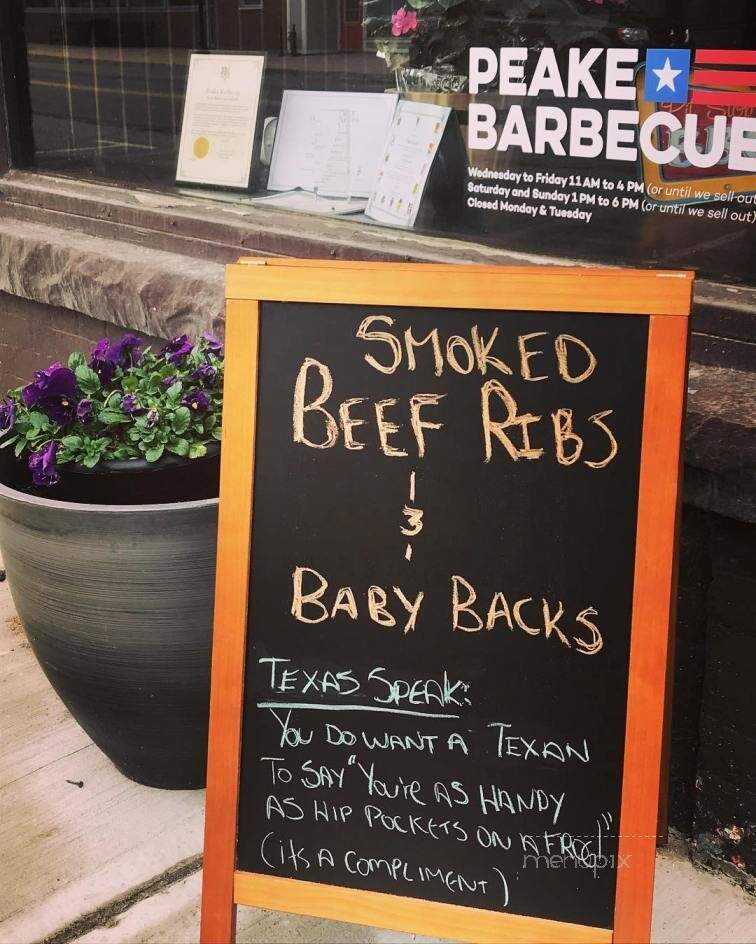 PEAKE
BARBECUE
Wednesday to Friday 11 AM to 4 PM (or until we sell out
Saturday and Sunday 1 PM to 6 PM (or until we sell out)
Closed Monday & Tuesday
SMOKED
BEEF RIBS
&
BABY BACKS
TEXAS SPEAK:
YOU DO WANT A TEXAN
TO SAY "You're AS HANDY
AS HIP POCKETS ON A FROG!"
(its A COMPLIMENT)
menupix